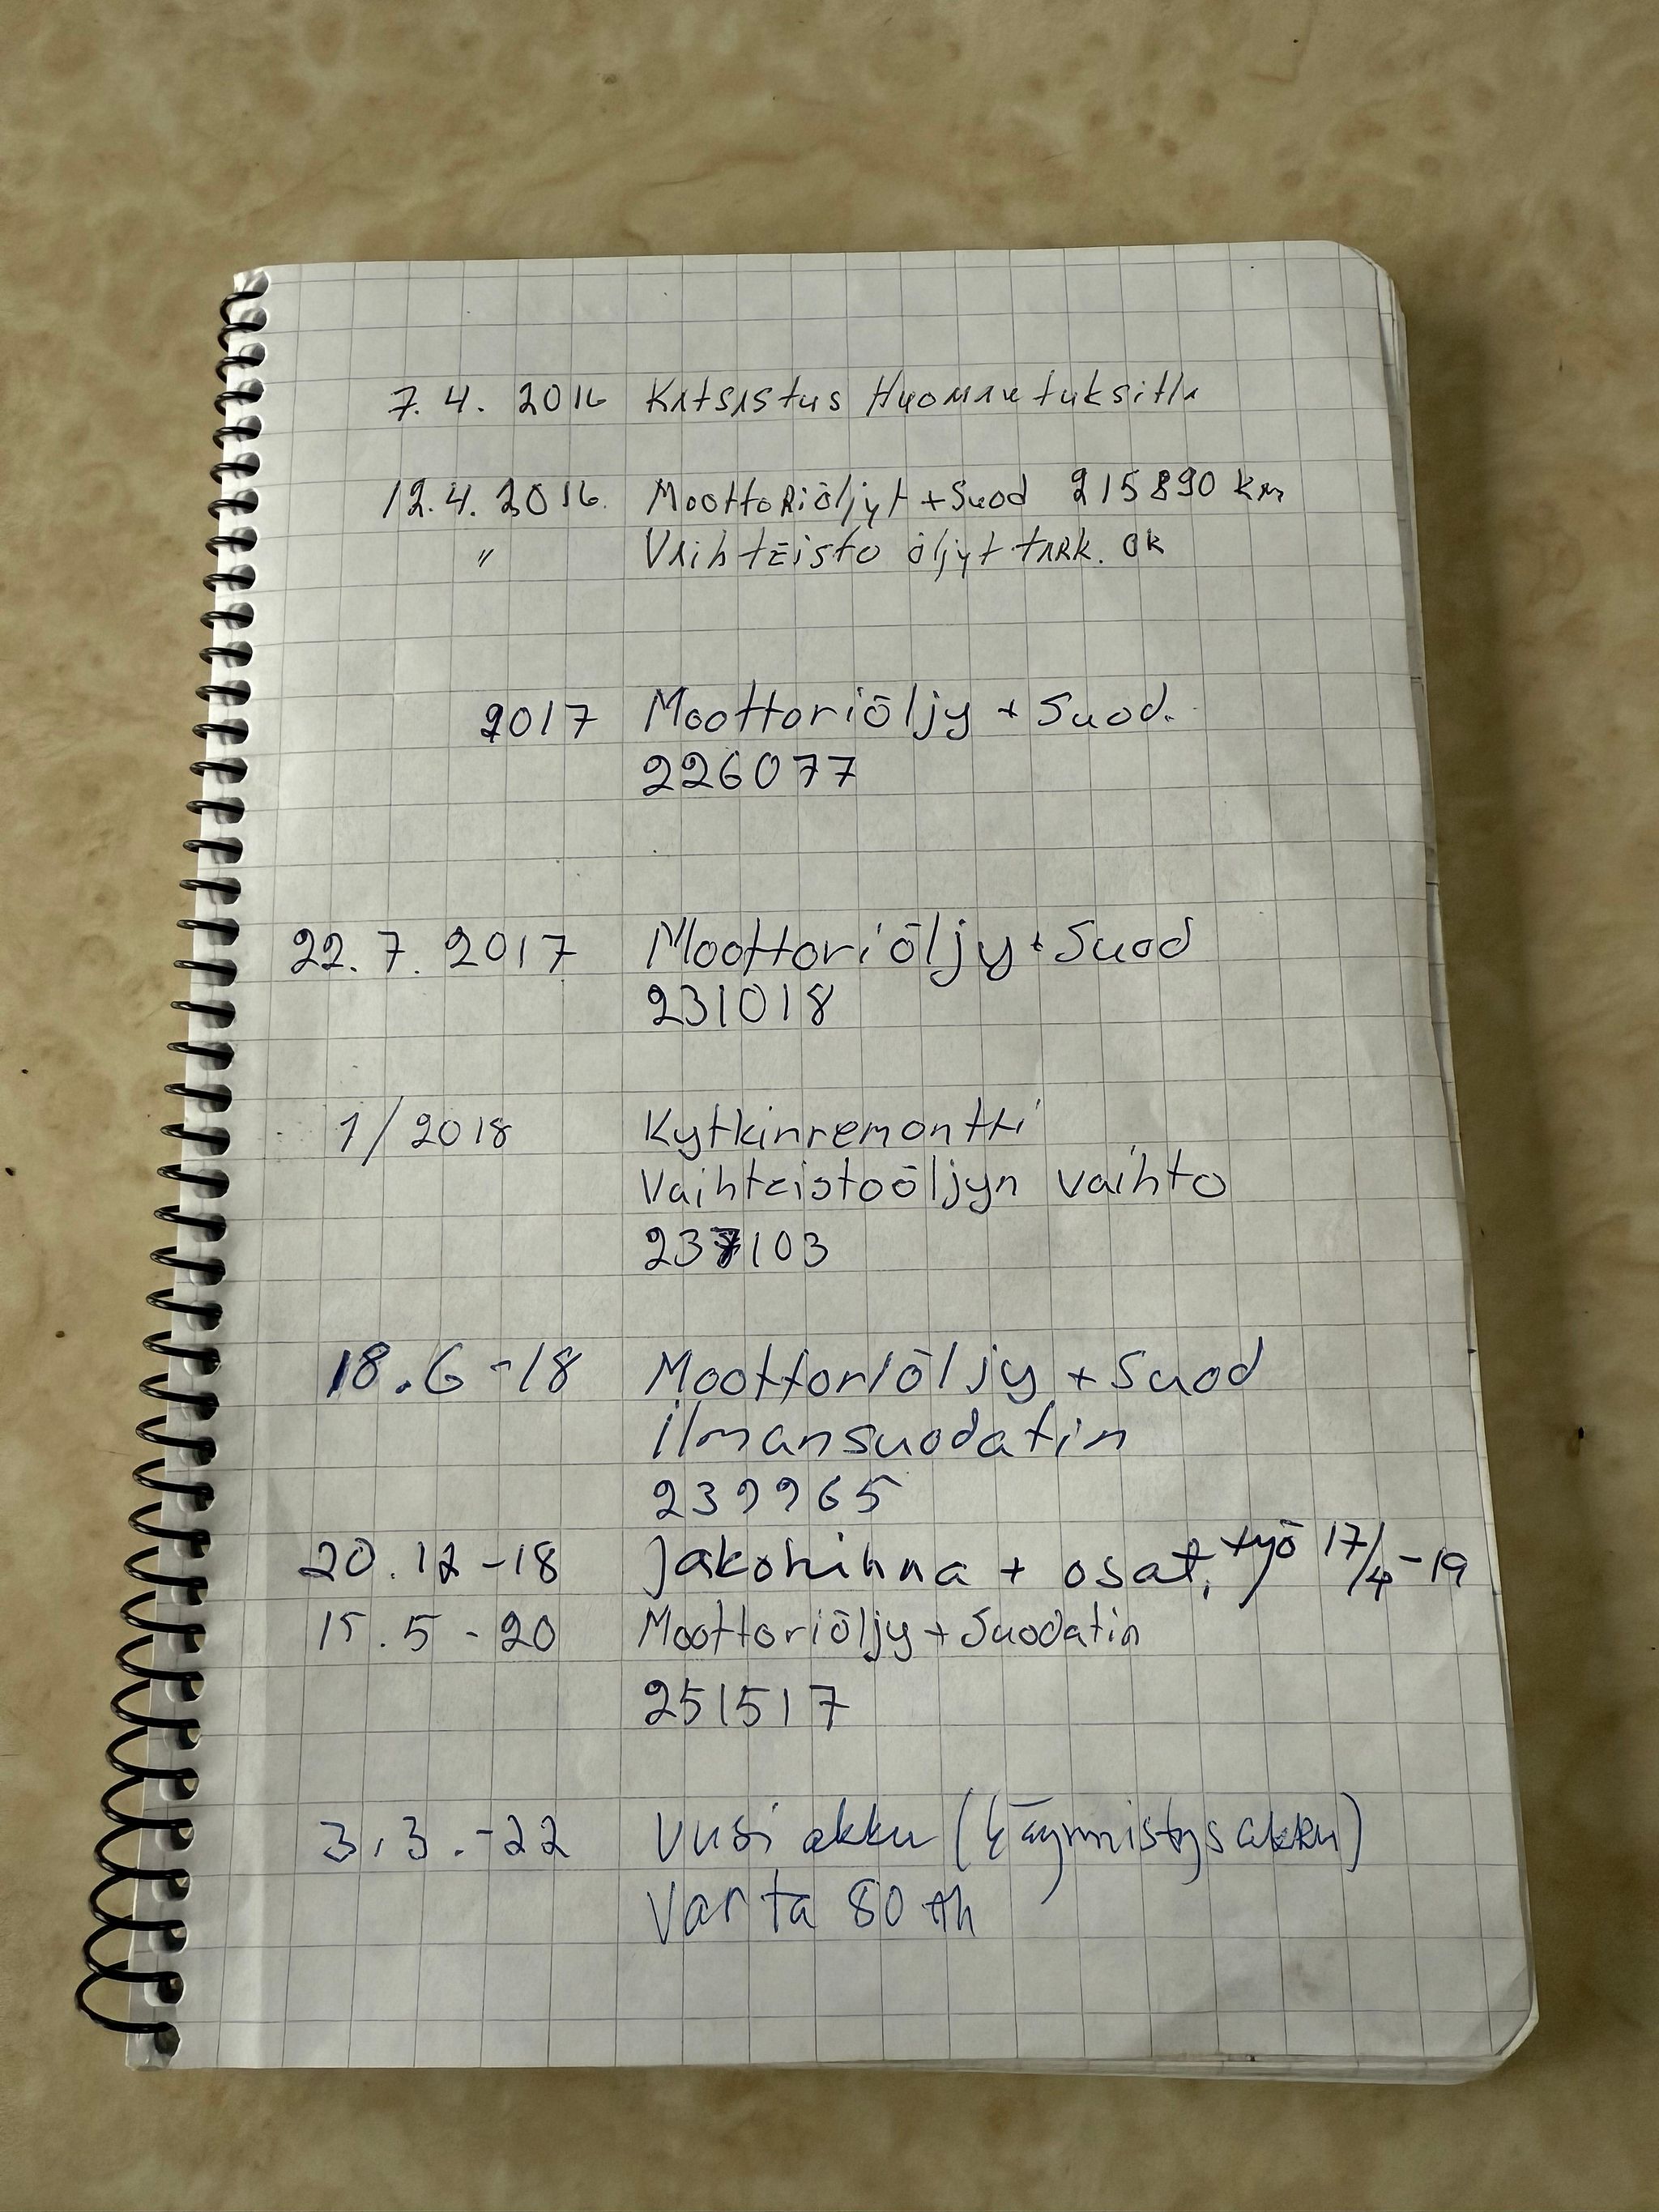 7.4. 2016 Katsastus Huomautuksitta
12.4.2016. Moottoriöljyt + Suod 215890 km
" Vaihteisto öljyt tark. ok
2017 Moottoriöljy + Suod.
226077
22.7.2017 Moottoriöljy + Suod
231018
1/2018 Kytkinremontti
Vaihteistoöljyn vaihto
237103
18.6 -18 Moottoriöljy + Suod
ilmansuodatin
239965
20.12 -18 Jakohihna + osat, työ 17/4 -19
15.5 -20 Moottoriöljy + Suodatin
251517
3.3.-22 Uusi akku (käynnistysakku)
Varta 80 Ah